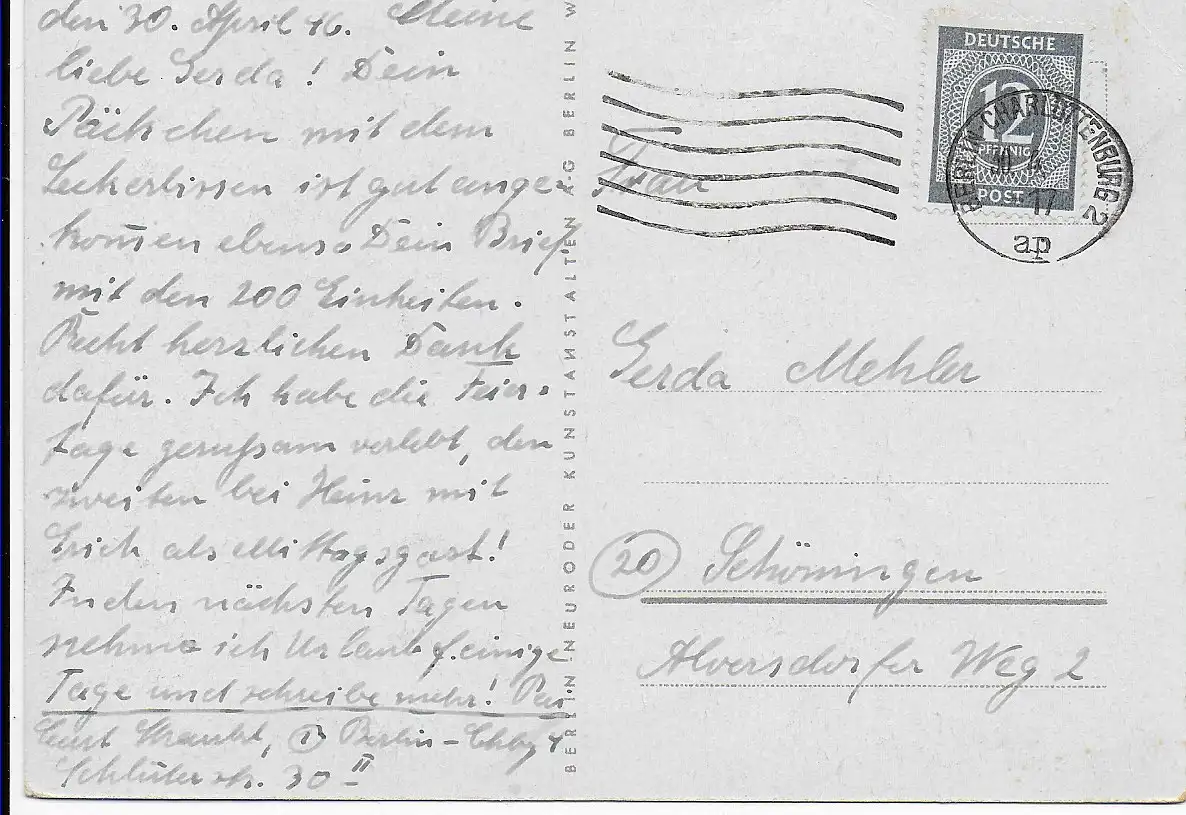 den 30. April 46. Meine
liebe Gerda! Dein
Päckchen mit dem
Leckerbissen ist gut ange-
kom̄en ebenso Dein Brief
mit den 200 Einheiten.
Recht herzlichen Dank
dafür. Ich habe die Feier-
tage geruhsam verlebt, den
zweiten bei Heinz mit
Erich als Mittagsgast!
In den nächsten Tagen
nehme ich Urlaub f. einige
Tage und schreibe mehr!
Curt
① Berlin-Chbg 4
Schlüterstr. 30 II
BERLIN-NEURODER KUNSTANSTALTEN AG BERLIN W
DEUTSCHE
12
PFENNIG
POST
BERLIN-CHARLOTTENBURG 2
17
ap
Frau
Gerda Mehler
(20) Schöningen
Alversdorfer Weg 2